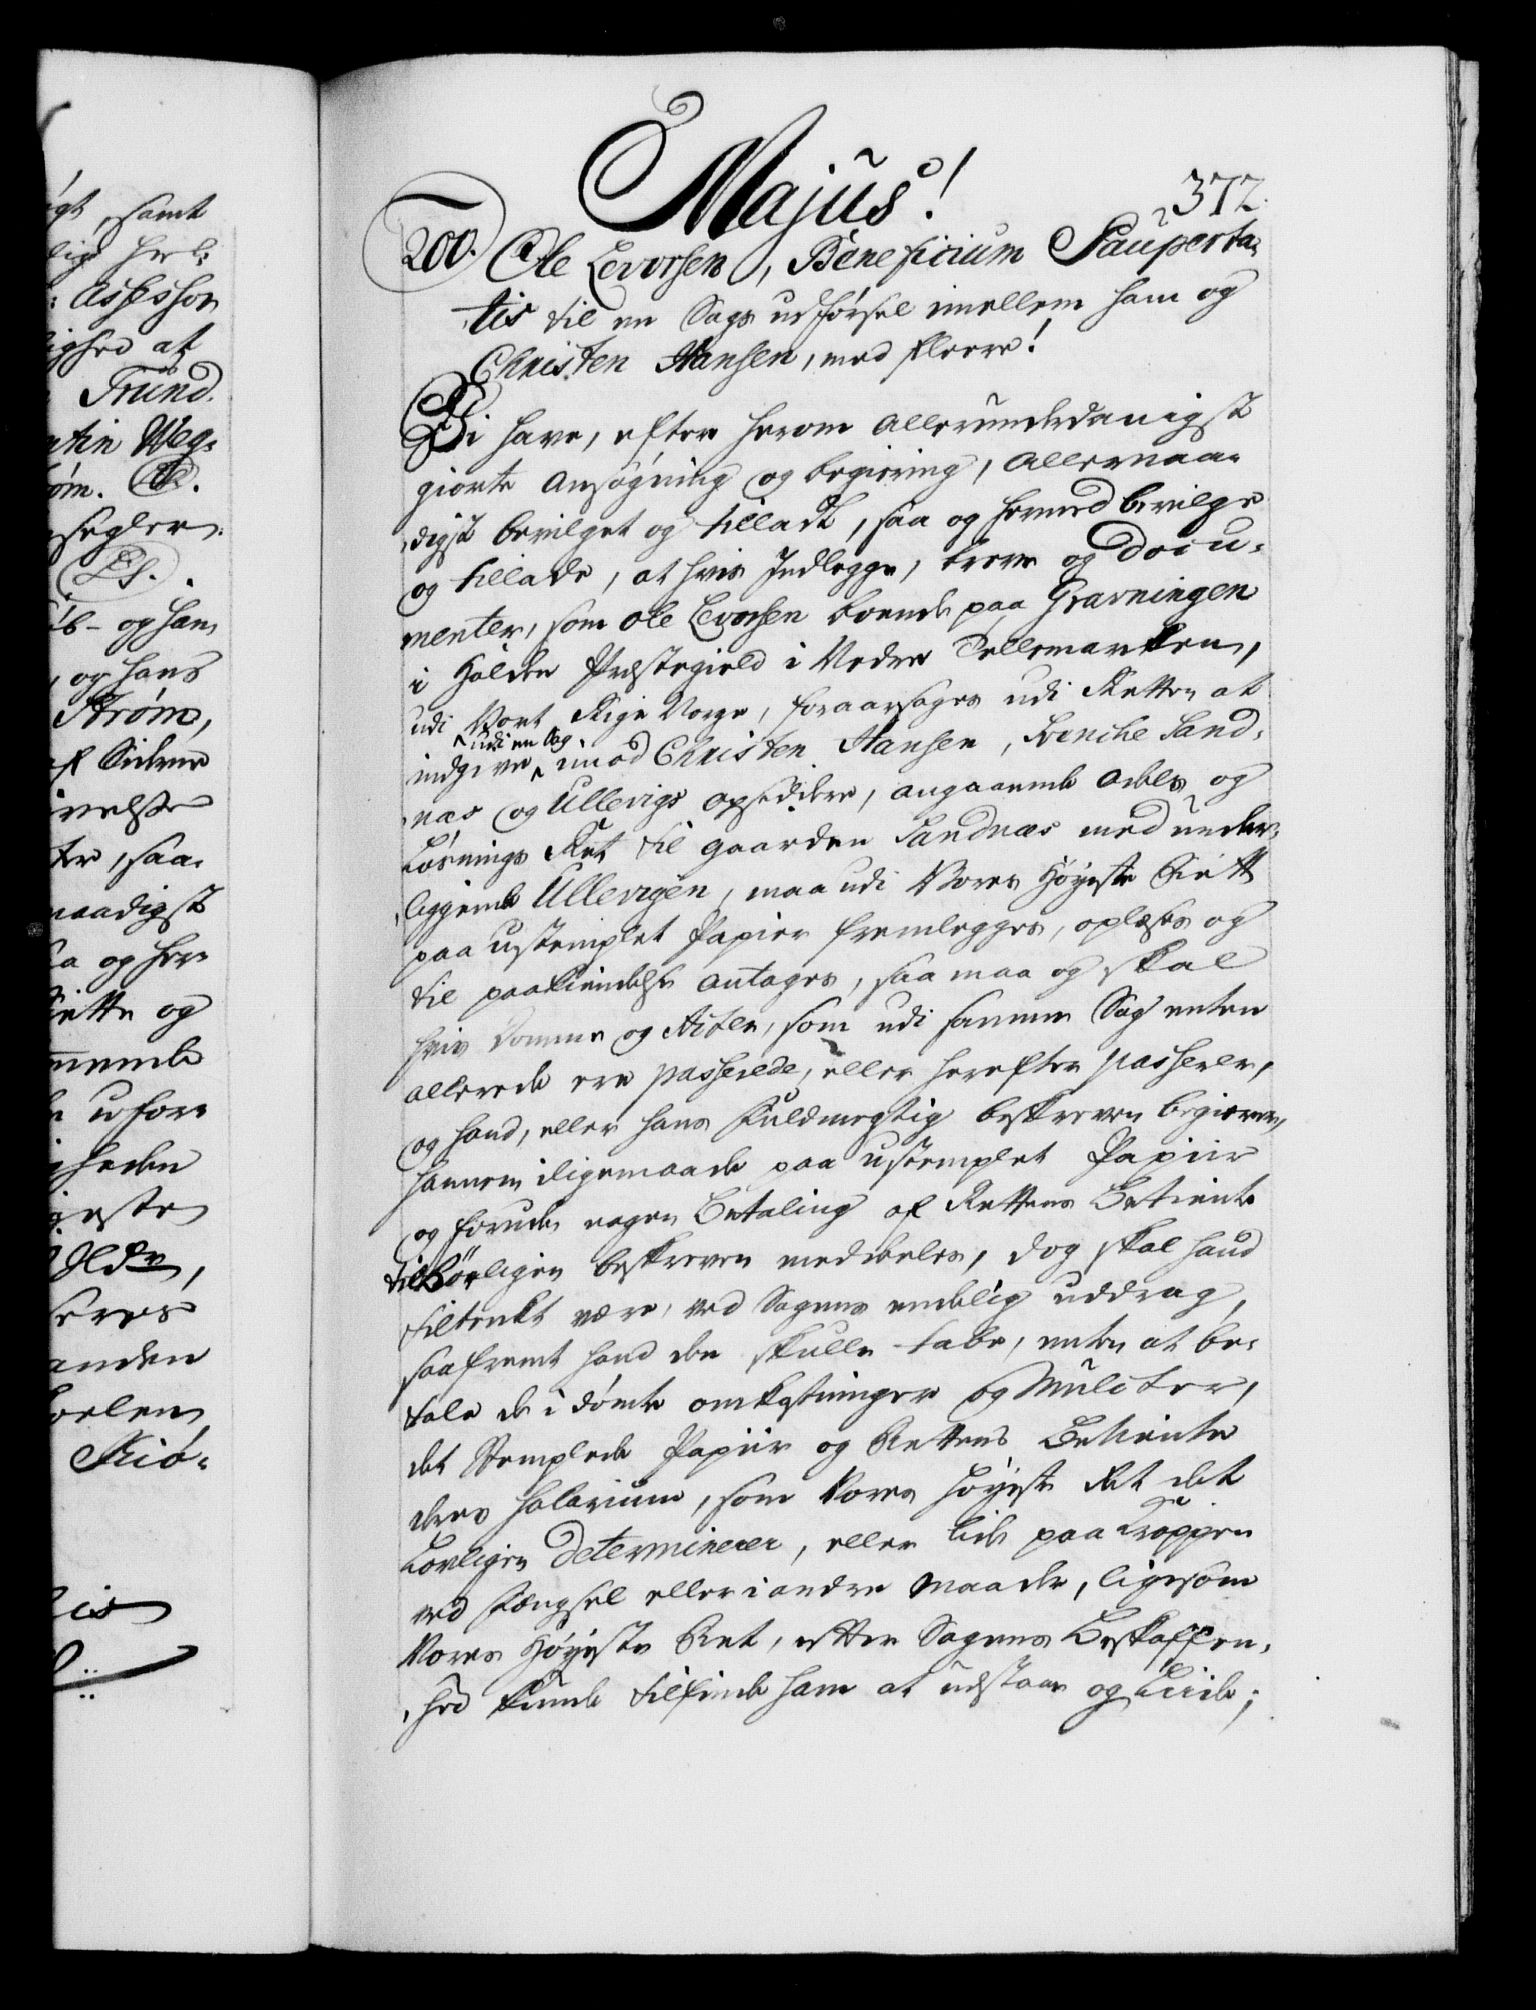 Majus!
372.
200. Ole Levorsen, Beneficium Pauperta-
tis til en Sags udførsel imellem ham og
Christen Hansen, med fleere!
Vi have, efter herom allerunderdanigst
giorte ansøgning og begiering, allernaa-
digst bevilget og tilladt, saa og hermed bevilge
og tillade, at hvis Indlegge, breve og Docu-
menter, som Ole Levorsen boende paa Gravningen
i Holden Præstegield i Nedre Tellemarken,
udi Vort Rige Norge, foraarsages udi Retten at
udi en Sag
indgive imod Christen Hansen, Svenche Sand-
næs og Ullevigs opsiddere, angaaende odels og
Løsnings Ret til gaarden Sandnæs med under-
liggende Ullevigen, maa udi Vores Høyeste Rett
paa ustemplet Papier fremlegges, oplæses og
til paakiendelse antages, saa maa og skal
hvis Domme og Acter, som udi samme Sag enten
allerede ere passerede, eller herefter passerer,
og hand, eller hans Fuldmegtig beskreven begierer,
hannem iligemaade paa ustemplet Papiir
og foruden nogen Betaling af Rettens Betiente
tilbørligen beskreven meddeeles, dog skal hand
tiltenkt være, ved Sagens endelig uddrag,
saafremt hand den skulle tabe, enten at be-
tale de idømte omkostninger og Mulcter,
det Stemplede Papiir og Rettens Betiente
deres Salarium, som Vores Høyeste Ret det
Lovligen determinerer, eller lide paa Kroppen
ved fængsel eller i andre maader, ligesom
Vores Høyeste Ret, efter Sagens Beskaffen-
hed kunde tilfinde ham at udstaae og Liide;
samt
Assessor
ighed at
Trund.
Weg-
segler.
LS.
og han
og hans
Strøm,
naadigst
og her-
og
Kiø-